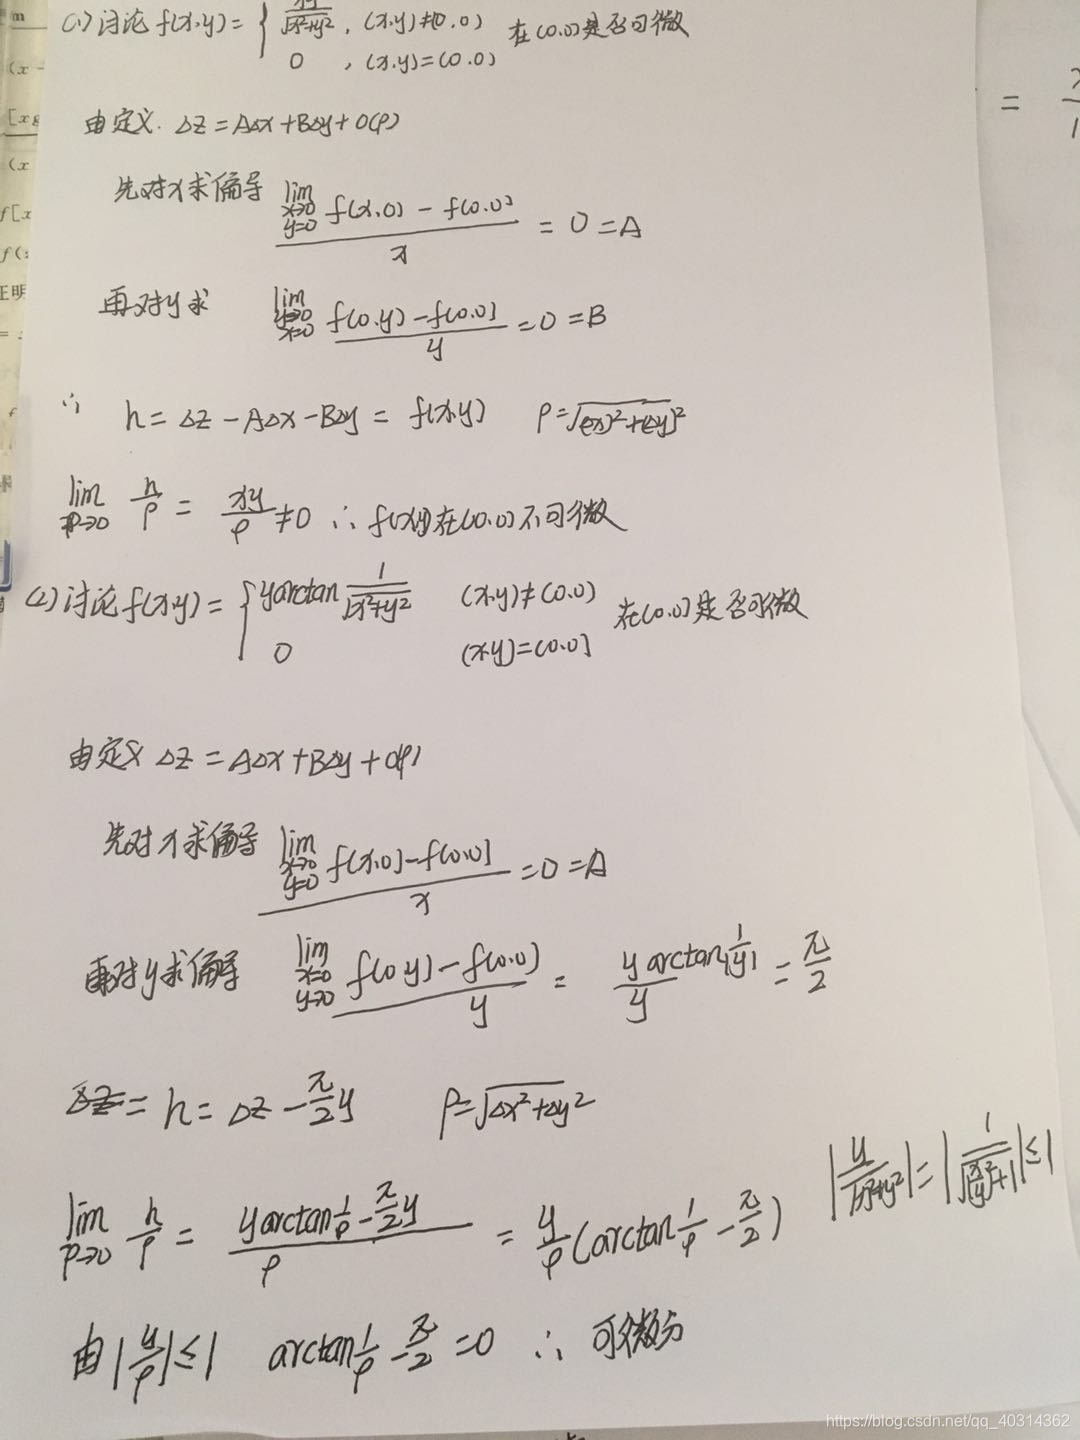 (1) 讨论 f(x,y) = { xy/√(x²+y²), (x,y)≠(0,0) 在(0,0)是否可微
0 , (x,y)=(0,0)
由定义. Δz = AΔx+BΔy+o(ρ)
先对x求偏导 lim x→0 y=0 f(x,0) - f(0,0) / x = 0 = A
再对y求 lim y→0 x=0 f(0,y) - f(0,0) / y = 0 = B
∴ h = Δz - AΔx - BΔy = f(x,y) ρ=√(Δx)²+(Δy)²
lim ρ→0 h/ρ = xy/ρ ≠0 ∴ f(x,y)在(0,0)不可微
(2) 讨论 f(x,y) = { yarctan 1/√(x²+y²) (x,y)≠(0,0) 在(0,0)是否可微
0 (x,y)=(0,0)
由定义 Δz = AΔx+BΔy+o(ρ)
先对x求偏导 lim x→0 y=0 f(x,0)-f(0,0) / x = 0 = A
再对y求偏导 lim x=0 y→0 f(0,y) - f(0,0) / y = y arctan|1/y| / y = π/2
= h = Δz - π/2 y ρ=√Δx²+Δy²
|y/√(x²+y²)| = |1/√((x/y)²+1)| ≤ 1
lim ρ→0 h/ρ = yarctan 1/ρ - π/2 y / ρ = y/ρ (arctan 1/ρ - π/2)
由 |y/ρ| ≤ 1 arctan 1/ρ - π/2 = 0 ∴ 可微分
= 
[xg
(x
f[x
f(
证明
https://blog.csdn.net/qq_40314362